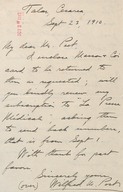 Talas, Cesarea
Sept 23, 1910.
My dear Mr. Peet,
I enclose Marden's
card to be returned to
the if requested; will
you kindly renew my
subscription to "La Presse
Médicale", asking them
to send back numbers,
that is from Sept 1.
With thanks for past
favors
Sincerely yours
(over) Wilfred M. Post